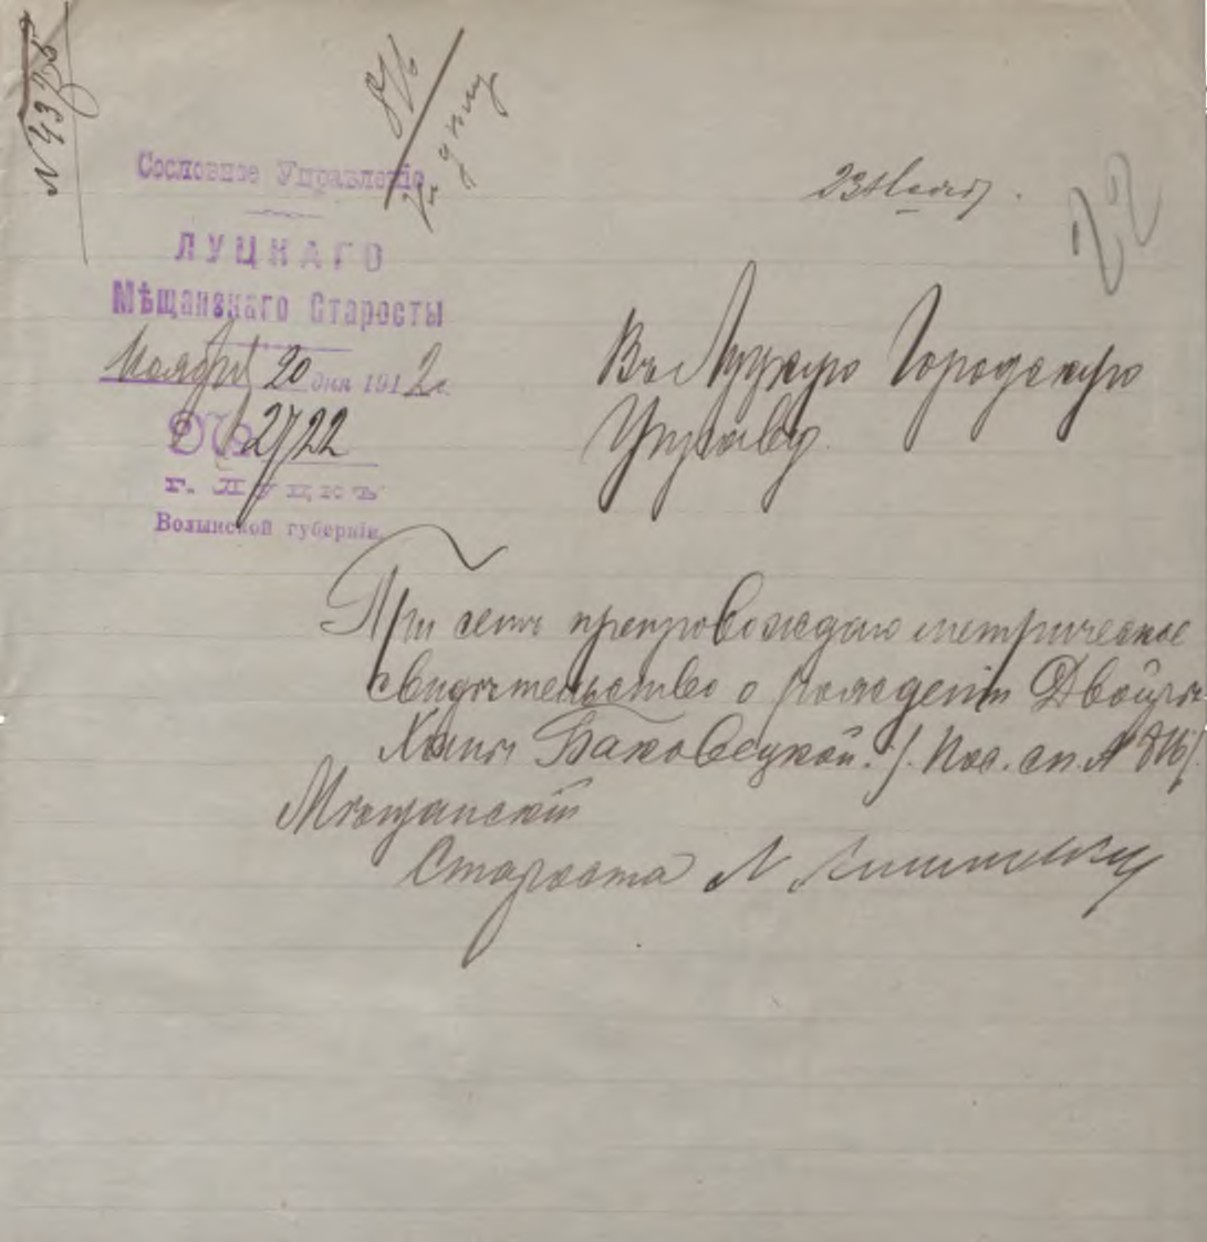 Сословное Управленіе
ЛУЦКАГО
Мѣщанскаго Старосты
Ноября 20 дня 1912 г.
№ 2722
г. Луцкъ
Волынской губерніи.
22
Въ Луцкую Городскую
Управу.
При семъ препровождаю метрическое
свидѣтельство о рожденіи Двойры
Ханы Баковецкой. /. Пос. сп. № 816/.
Мѣщанскій
Староста